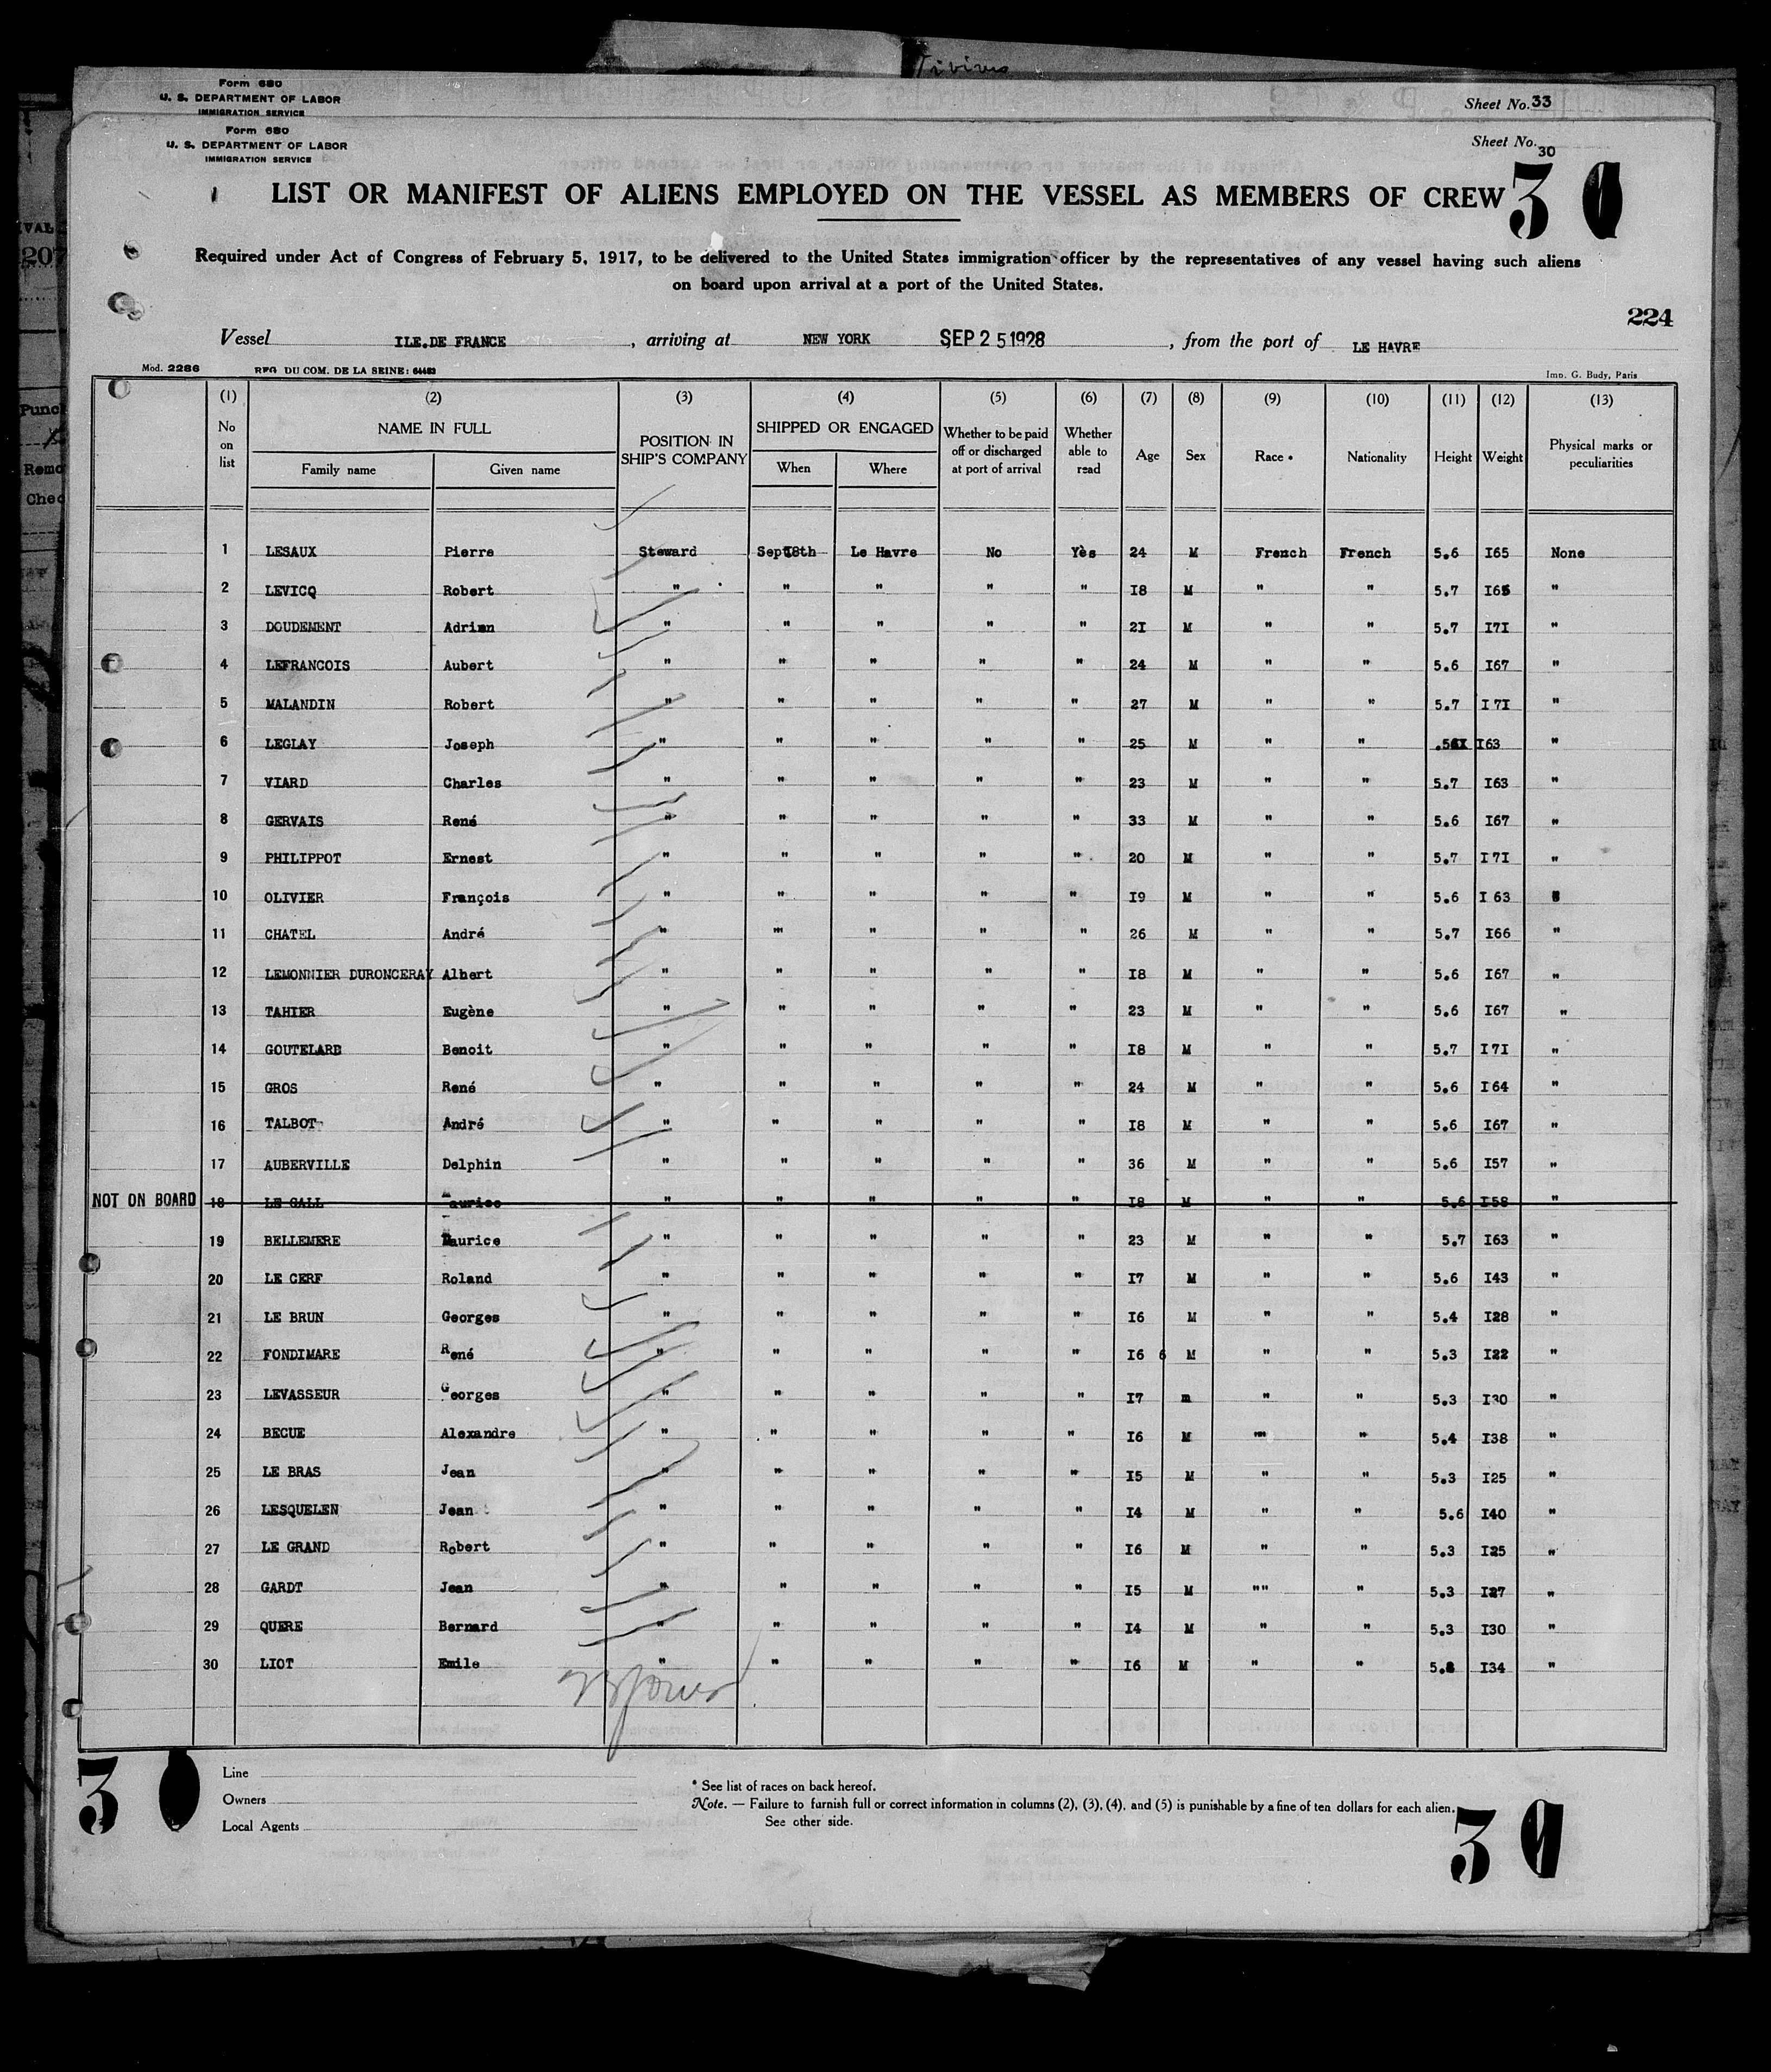 Form 680
U. S. DEPARTMENT OF LABOR
IMMIGRATION SERVICE
Sheet No. 33
Form 680
U. S. DEPARTMENT OF LABOR
IMMIGRATION SERVICE
Sheet No. 30
30
LIST OR MANIFEST OF ALIENS EMPLOYED ON THE VESSEL AS MEMBERS OF CREW
Required under Act of Congress of February 5, 1917, to be delivered to the United States immigration officer by the representatives of any vessel having such aliens
on board upon arrival at a port of the United States.
224
Vessel ILE.DE FRANCE , arriving at NEW YORK SEP 25 1928 , from the port of LE HAVRE
Mod. 2286 REG DU COM. DE LA SEINE: 64483 Imp. G. Budy, Paris
(1) (2) (3) (4) (5) (6) (7) (8) (9) (10) (11) (12) (13)
No on list NAME IN FULL Family name Given name POSITION IN SHIP'S COMPANY SHIPPED OR ENGAGED When Where Whether to be paid off or discharged at port of arrival Whether able to read Age Sex Race * Nationality Height Weight Physical marks or peculiarities
1 LESAUX Pierre Steward Sept18th Le Havre No Yès 24 M French French 5.6 I65 None
2 LEVICQ Robert " " " " " I8 M " " 5.7 I65 "
3 DOUDEMENT Adrian " " " " " 2I M " " 5.7 I7I "
4 LEFRANCOIS Aubert " " " " " 24 M " " 5.6 I67 "
5 MALANDIN Robert " " " " " 27 M " " 5.7 I7I "
6 LEGLAY Joseph " " " " " 25 M " " I63 "
7 VIARD Charles " " " " " 23 M " " 5.7 I63 "
8 GERVAIS René " " " " " 33 M " " 5.6 I67 "
9 PHILIPPOT Ernest " " " " " 20 M " " 5.7 I7I "
10 OLIVIER François " " " " " I9 M " " 5.6 I63 "
11 CHATEL André " " " " " 26 M " " 5.7 I66 "
12 LEMONNIER DURONCERAY Albert " " " " " I8 M " " 5.6 I67 "
13 TAHIER Eugène " " " " " 23 M " " 5.6 I67 "
14 GOUTELARD Benoit " " " " " I8 M " " 5.7 I7I "
15 GROS René " " " " " 24 M " " 5.6 I64 "
16 TALBOT André " " " " " I8 M " " 5.6 I67 "
17 AUBERVILLE Delphin " " " " " 36 M " " 5.6 I57 "
NOT ON BOARD 18 LE GALL Maurice " " " " " I8 M " " 5.6 I58 "
19 BELLEMERE Maurice " " " " " 23 M " " 5.7 I63 "
20 LE CERF Roland " " " " " I7 M " " 5.6 I43 "
21 LE BRUN Georges " " " " " I6 M " " 5.4 I28 "
22 FONDIMARE René " " " " " I6 6 M " " 5.3 I22 "
23 LEVASSEUR Georges " " " " " I7 m " " 5.3 I30 "
24 BECUE Alexandre " " " " " I6 M "" " 5.4 I38 "
25 LE BRAS Jean " " " " " I5 M " " 5.3 I25 "
26 LESQUELEN Jean " " " " " I4 M " " 5.6 I40 "
27 LE GRAND Robert " " " " " I6 M " " 5.3 I25 "
28 GARDT Jean " " " " " I5 M "" " 5.3 I27 "
29 QUERE Bernard " " " " " I4 M " " 5.3 I30 "
30 LIOT Emile " " " " " I6 M " " I34 "
30
Line
Owners
Local Agents
* See list of races on back hereof.
Note. — Failure to furnish full or correct information in columns (2), (3), (4), and (5) is punishable by a fine of ten dollars for each alien.
See other side.
30